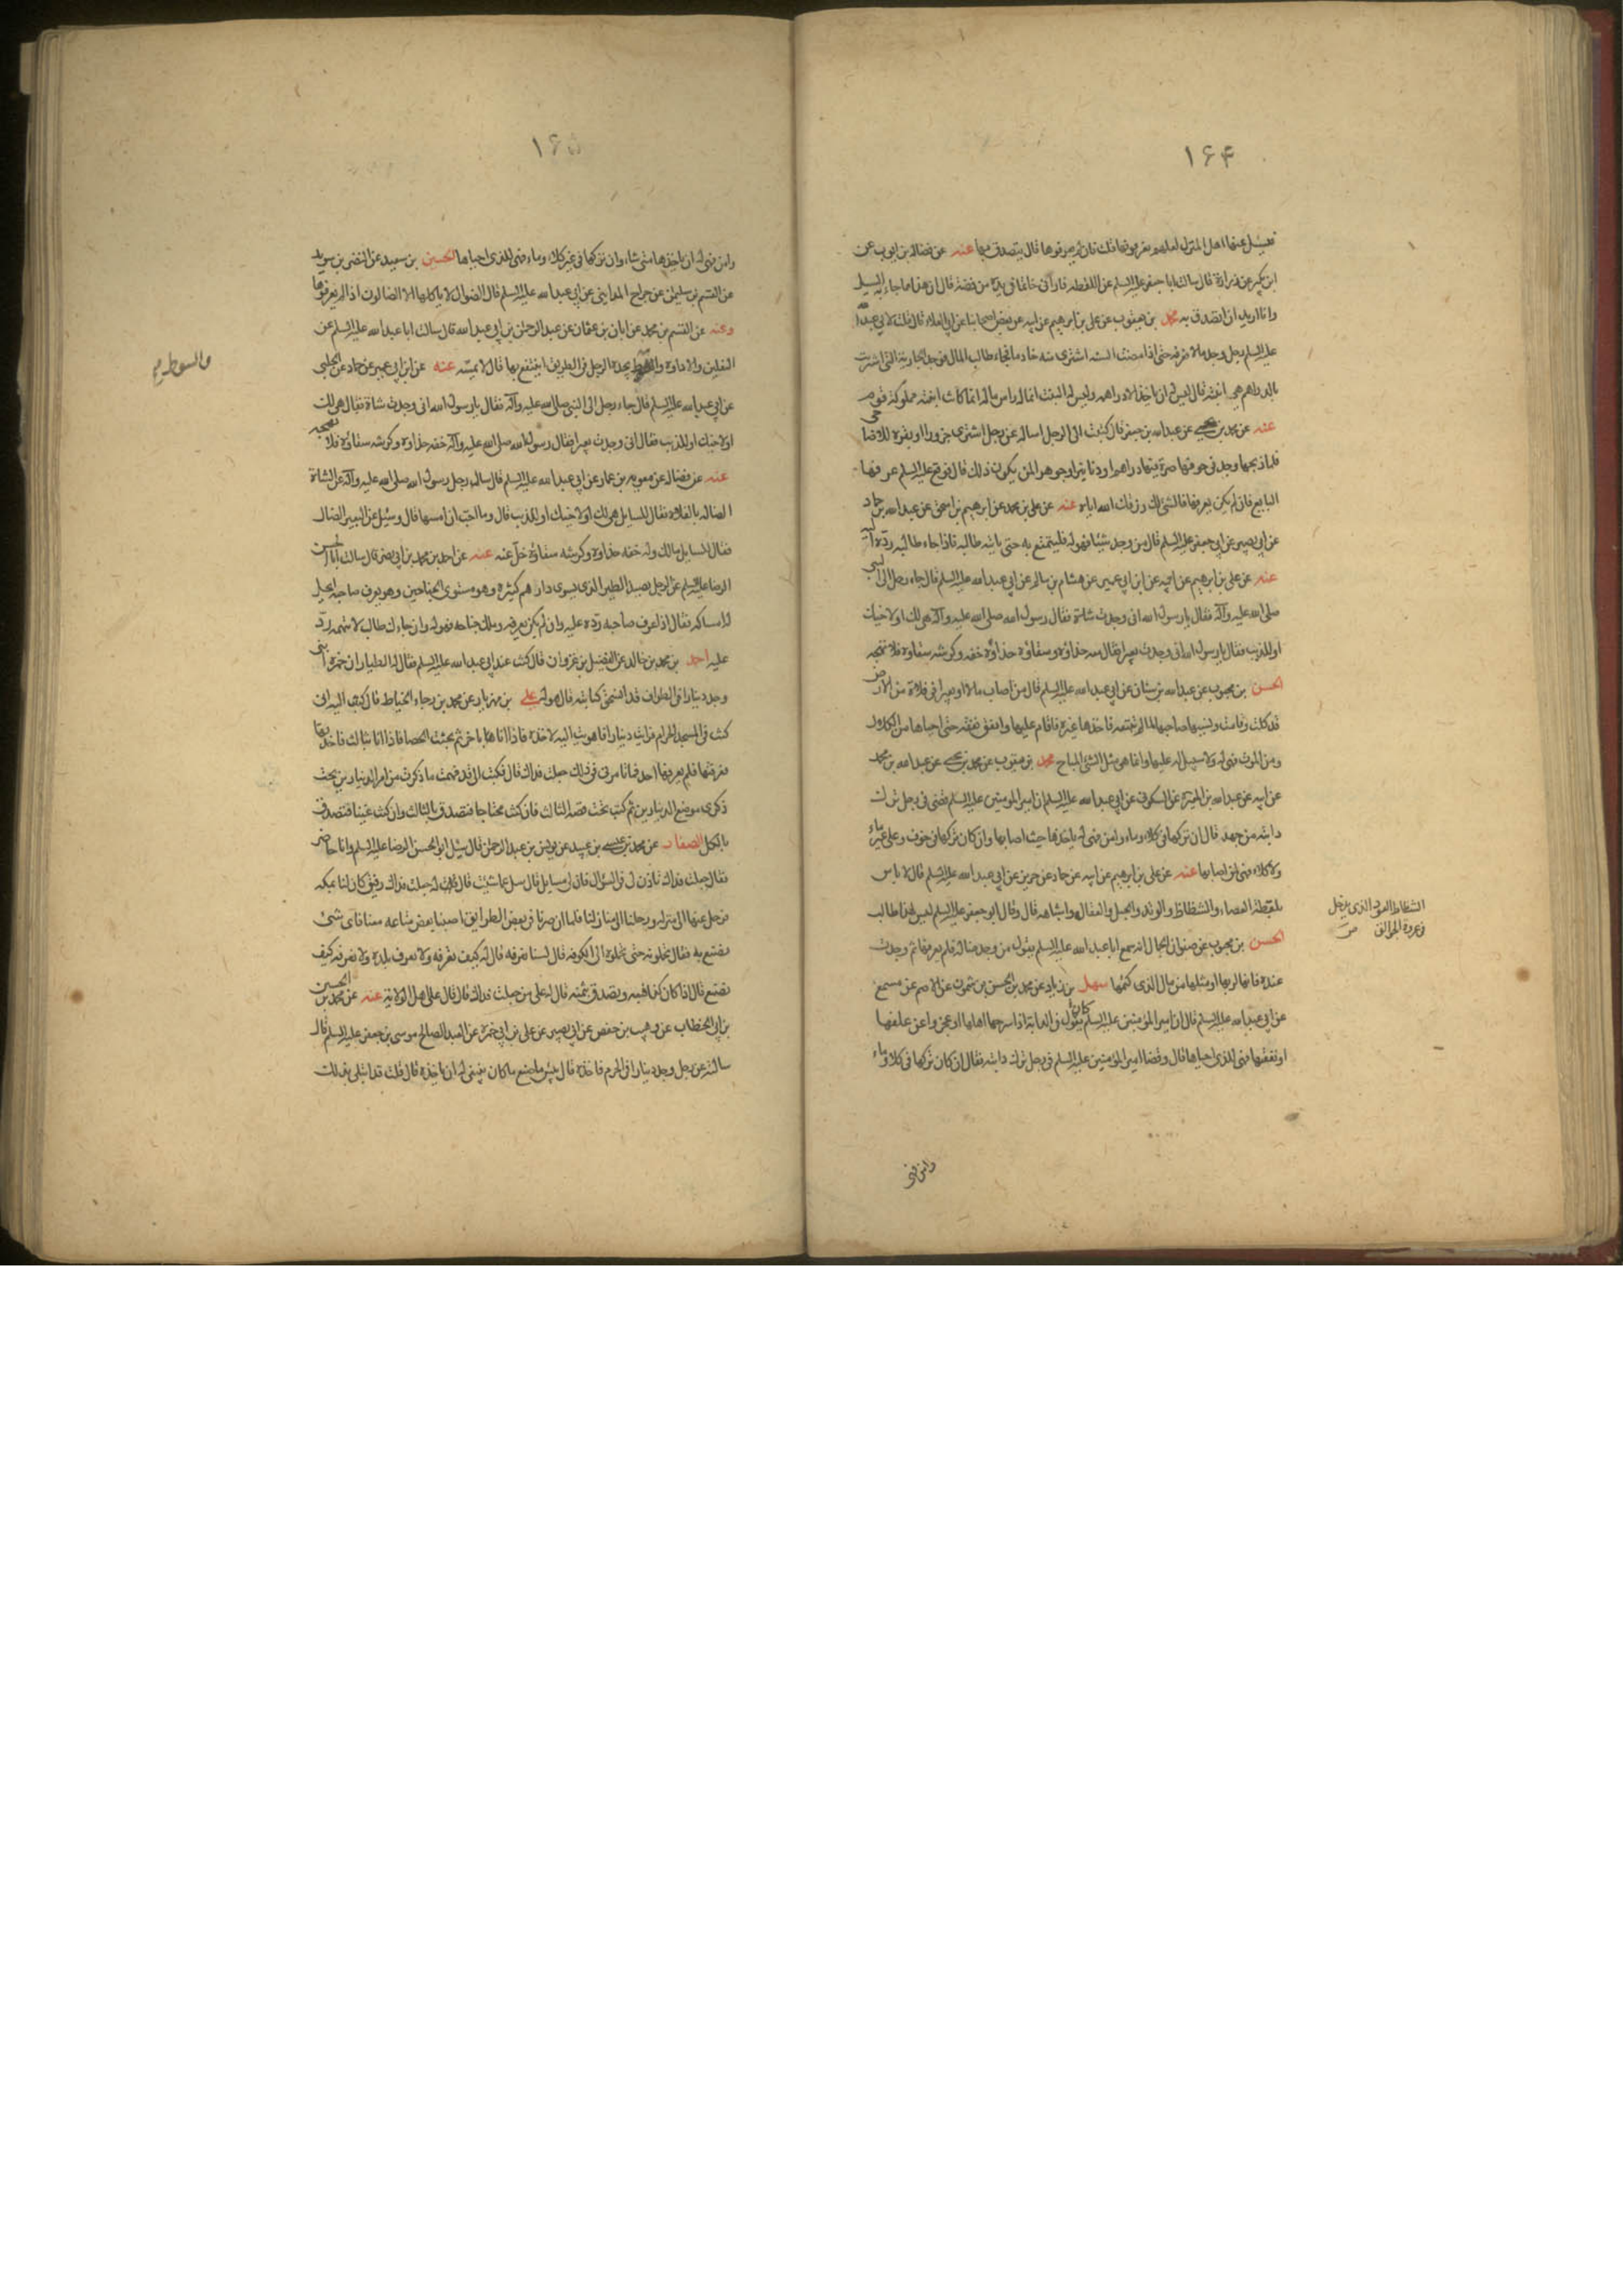 ۱۶۴
فيسئل عنها اهل المنزل لعلهم يعرفونها قلت فان لم يعرفوها قال يتصدق بها عنه عن فضالة بن ايوب عن
ابن بكير عن زرارة قال سالت ابا جعفر عليه السلم عن اللقطه فارانى خاتما فى يده من فضة قال ان هذا مما جاء به السيل
وانا اريد ان اتصدق به محمد بن يعقوب عن على بن ابرهيم عن ابيه عن بعض اصحابنا عن ابى العلاء قال قلت لابى عبد الله
عليه السلم رجل وجد مالا فعرفه حتى اذا مضت السنه اشترى به خادما فجاء طالب المال فوجد الجارية التى اشتريت
بالدراهم هى ابنته قال ليس له ان ياخذ الا دراهمه وليس له البنت انما له راس ماله انما كانت ابنته مملوكة قوم
عنه عن محمد بن يحيى عن عبد الله بن جعفر قال كتبت الى الرجل اساله عن رجل اشترى جزورا او بقره للاضاحى
فلما ذبحها وجد فى جوفها صرة فيها دراهم او دنانير او جوهر لمن يكون ذلك قال فوقع عليه السلم عرفها
البايع فان لم يكن يعرفها فالشئ لك رزقك الله اياه عنه عن على بن محمد عن ابرهيم بن اسحق عن عبد الله بن حماد
عن ابى بصير عن ابى جعفر عليه السلم قال من وجد شيئا فهو له فليتمتع به حتى ياتيه طالبه فاذا جاء طالبه رده اليه
عنه عن على بن ابرهيم عن ابيه عن ابن ابى عمير عن هشام بن سالم عن ابى عبد الله عليه السلم قال جاء رجل الى النبى
صلى الله عليه وآله فقال يا رسول الله انى وجدت شاة فقال رسول الله صلى الله عليه وآله هى لك او لاخيك
او للذيب فقال يا رسول الله انى وجدت بعيرا فقال معه حذاؤه وسقاؤه حذاؤه خفه وكرشه سقاؤه فلا تهجه
الحسن بن محبوب عن عبد الله بن سنان عن ابى عبد الله عليه السلم قال من اصاب مالا او بعيرا فى فلاة من الارض
قد كلت وقامت وسيبها صاحبها لما لم تتبعه فاخذها غيره فاقام عليها وانفق نفقة حتى احياها من الكلال
ومن الموت فهى له ولا سبيل له عليها وانما هى مثل الشئ المباح محمد بن يعقوب عن محمد بن يحيى عن عبد الله بن محمد
عن ابيه عن عبد الله بن المغيرة عن السكونى عن ابى عبد الله عليه السلم ان امير المومنين عليه السلم قضى فى رجل ترك
دابته من جهد قال ان تركها فى كلاء وماء وامن فهى له ياخذها حيث اصابها وان كان تركها فى خوف وعلى غير ماء
ولا كلاء فهى لمن اصابها عنه عن على بن ابرهيم عن ابيه عن حماد عن حريز عن ابى عبد الله عليه السلم قال لا باس
بلقطة العصاء والشظاظ والوتد والحبل والعقال واشباهه قال وقال ابو جعفر عليه السلم ليس لهذا طالب
الحسن بن محبوب عن صفوان الجمال انه سمع ابا عبد الله عليه السلم يقول من وجد ضاله فلم يعرفها ثم وجدت
عنده فانها لربها او مثلها من مال الذى كتمها سهل بن زياد عن محمد بن الحسن بن شمون عن الاصم عن مسمع
عن ابى عبد الله عليه السلم قال ان امير المؤمنين عليه السلم كان يقول فى الدابة اذا سرحها اهلها او عجزوا عن علفها
او نفقتها فهى للذى احياها قال وقضا امير المؤمنين عليه السلم فى رجل ترك دابته فقال ان كان تركها فى كلاء وماء
وامن فهى
الشظاظ العود الذى يدخل
فى عروة الجوالق ص
۱۶۵
وامن فهى له ان ياخذها متى شاء وان تركها فى غير كلاء وماء فهى للذى احياها الحسين بن سعيد عن النضر بن سويد
عن القسم بن سليمن عن جراح المداينى عن ابى عبد الله عليه السلم قال الضوال لا ياكلها الا الضالون اذا لم يعرفوها
وعنه عن القسم بن محمد عن ابان بن عثمان عن عبد الرحمن بن ابى عبد الله قال سالت ابا عبد الله عليه السلم عن
النعلين والاداوة والسوط يجده الرجل فى الطريق اينتفع بها قال لا يمسه عنه عن ابن ابى عمير عن حماد عن الحلبى
عن ابى عبد الله عليه السلم قال جاء رجل الى النبى صلى الله عليه وآله فقال يا رسول الله انى وجدت شاة فقال هى لك
او لاخيك او للذيب فقال انى وجدت بعيرا فقال رسول الله صلى الله عليه وآله خفه حذاؤه وكرشه سقاؤه فلا تهجه
عنه عن فضاله عن معويه بن عمار عن ابى عبد الله عليه السلم قال ساله رجل رسول الله صلى الله عليه وآله عن الشاة
الضاله بالفلاة فقال للسايل هى لك او لاخيك او للذيب قال وما احب ان امسها قال وسئل عن البعير الضال
فقال للسايل مالك وله خفه حذاؤه وكرشه سقاؤه خل عنه عنه عن احمد بن محمد بن ابى نصر قال سالت ابا الحسن
الرضا عليه السلم عن الرجل يصيد الطير الذى يسوى دراهم كثيرة وهو مستوى الجناحين وهو يعرف صاحبه ايحل
له امساكه فقال اذا عرف صاحبه رده عليه وان لم يكن يعرفه وملك جناحه فهو له وان جاءك طالب لا تتهمه رده
عليه احمد بن محمد بن خالد عن الفضيل بن غزوان قال كنت عند ابى عبد الله عليه السلم فقال له الطيار ان حمزة ابنى
وجد دينارا فى الطواف قد انسحق كتابته قال هو له على بن مهزيار عن محمد بن رجاء الخياط قال كتبت اليه انى
كنت فى المسجد الحرام فرايت دينارا فاهويت اليه لاخذه فاذا انا باخر ثم بحثت الحصا فاذا انا بثالث فاخذتها
فعرفتها فلم يعرفها احد فما تامرنى فى ذلك جعلت فداك قال فكتب الى قد فهمت ما ذكرت من امر الدينارين تحت
ذكرى موضع الدينارين ثم كتب تحت قصة الثالث فان كنت محتاجا فتصدق بالثالث وان كنت غنيا فتصدق
بالكل الصفار عن محمد بن عيسى بن عبيد عن يونس بن عبد الرحمن قال سئل ابو الحسن الرضا عليه السلم وانا حاضر
فقال جعلت فداك تاذن لى فى السؤال فان لى مسايل قال سل عما شئت قال قلت له جعلت فداك رفيق كان لنا بمكه
فرحل عنها الى منزله ورحلنا الى منازلنا فلما ان صرنا فى بعض الطرايق اصبنا بعض متاعه معنا فاى شئ
نصنع به فقال تحملونه حتى تحملوه الى الكوفه قال لسنا نعرفه قال له كيف تعرفه ولا نعرف بلده ولا نعرف كيف
نصنع قال اذا كان كذا فبعه وتصدق بثمنه قال له على من جعلت فداك قال قال على اهل الولاية عنه عن محمد بن الحسين
بن ابى الخطاب عن وهيب بن حفص عن ابى بصير عن على بن ابى حمزه عن العبد الصالح موسى بن جعفر عليه السلم قال
سالته عن رجل وجد دينارا فى الحرم فاخذه قال بئس ما صنع ما كان ينبغى له ان ياخذه قال قلت قد ابتلى بذلك
والسوط